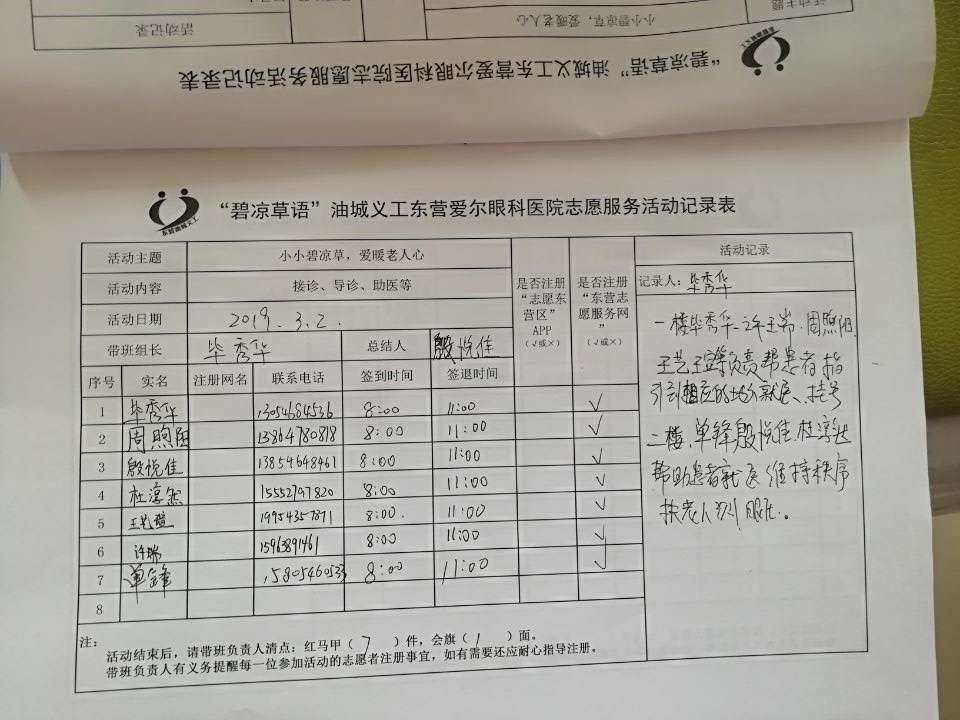 活动记录
小小碧凉草，爱暖老人心
活动主题
“碧凉草语”油城义工东营爱尔眼科医院志愿服务活动记录表
东营油城义工
“碧凉草语”油城义工东营爱尔眼科医院志愿服务活动记录表
活动主题 小小碧凉草，爱暖老人心 是否注册“志愿东营区”APP（√或×） 是否注册“东营志愿服务网”（√或×） 活动记录
活动内容 接诊、导诊、助医等 记录人：毕秀华
活动日期 2019.3.2.
带班组长 毕秀华 总结人 殷悦佳
序号 实名 注册网名 联系电话 签到时间 签退时间
1 毕秀华 13054684536 8:00 11:00 √
2 周煦阳 13864780818 8:00 11:00 √
3 殷悦佳 13854648461 8:00 11:00 √
4 杜淳然 15552797820 8:00 11:00 √
5 王艺璇 19954357871 8:00. 11:00 √
6 许瑞 15963891461 8:00 11:00 √
7 单锋 15805460533 8:00 11:00 √
8
一楼毕秀华 周煦阳
王艺 等负责帮患者指
引相应的地方就医、挂号
二楼，单锋殷悦佳，杜淳然
帮助患者就医维持秩序
扶老人
注：
活动结束后，请带班负责人清点：红马甲（7）件，会旗（1）面。
带班负责人有义务提醒每一位参加活动的志愿者注册事宜，如有需要还应耐心指导注册。